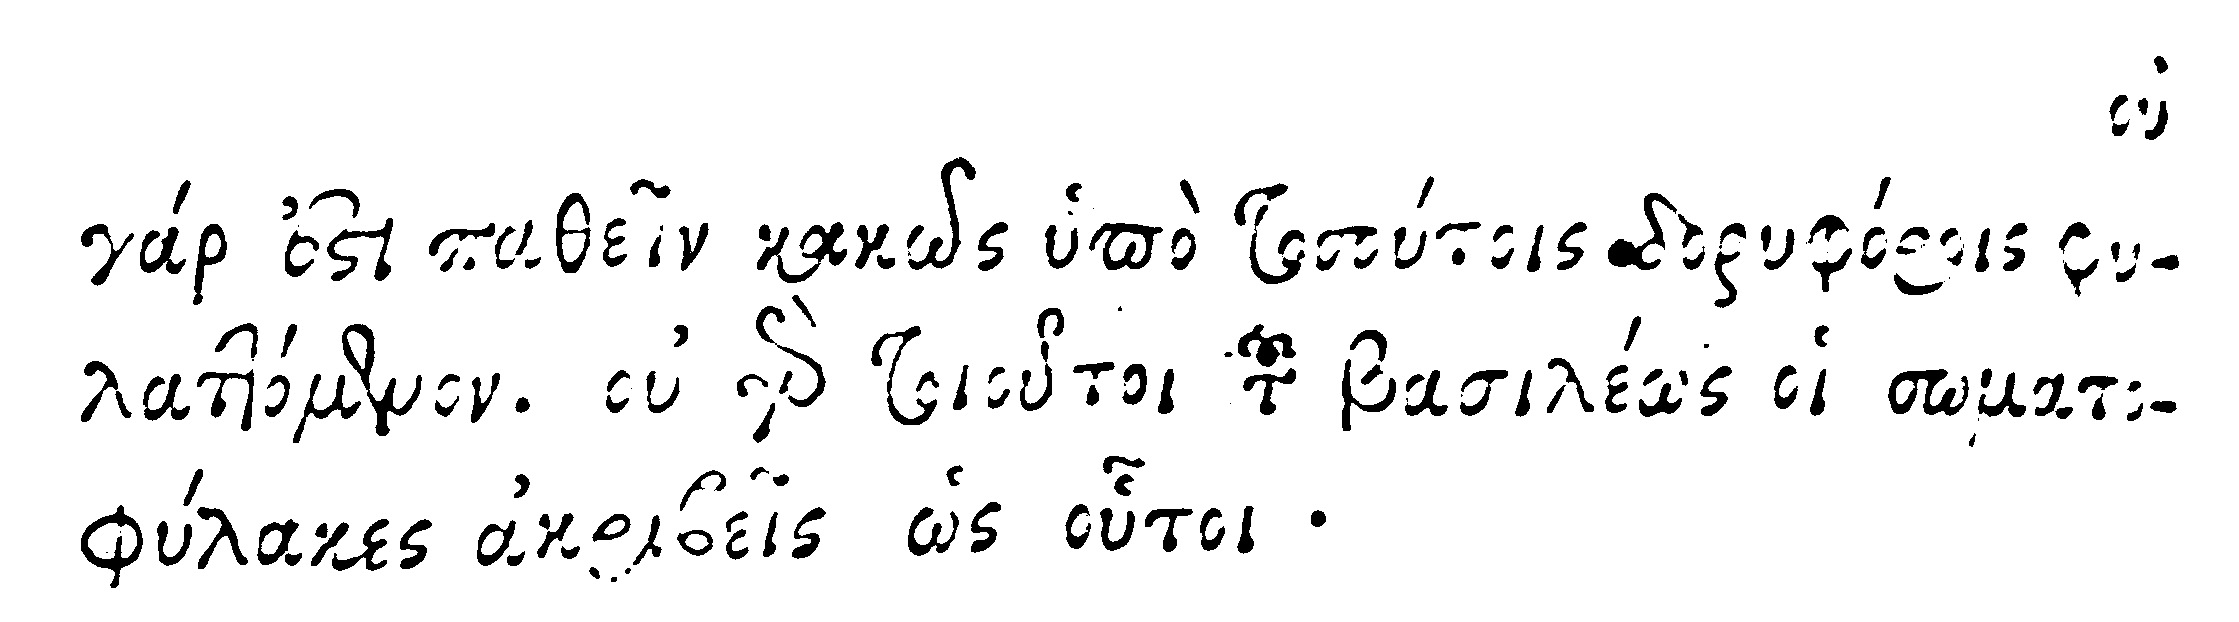 οὐ
γάρ ἐστι παθεῖν κακῶς ὑπὸ τοιούτοις δορυφόροις φυ-
λαττόμενον. οὐ γὰρ τοιοῦτοι τοῦ βασιλέως οἱ σωματο-
φύλακες ἀκριβεῖς ὡς οὗτοι.